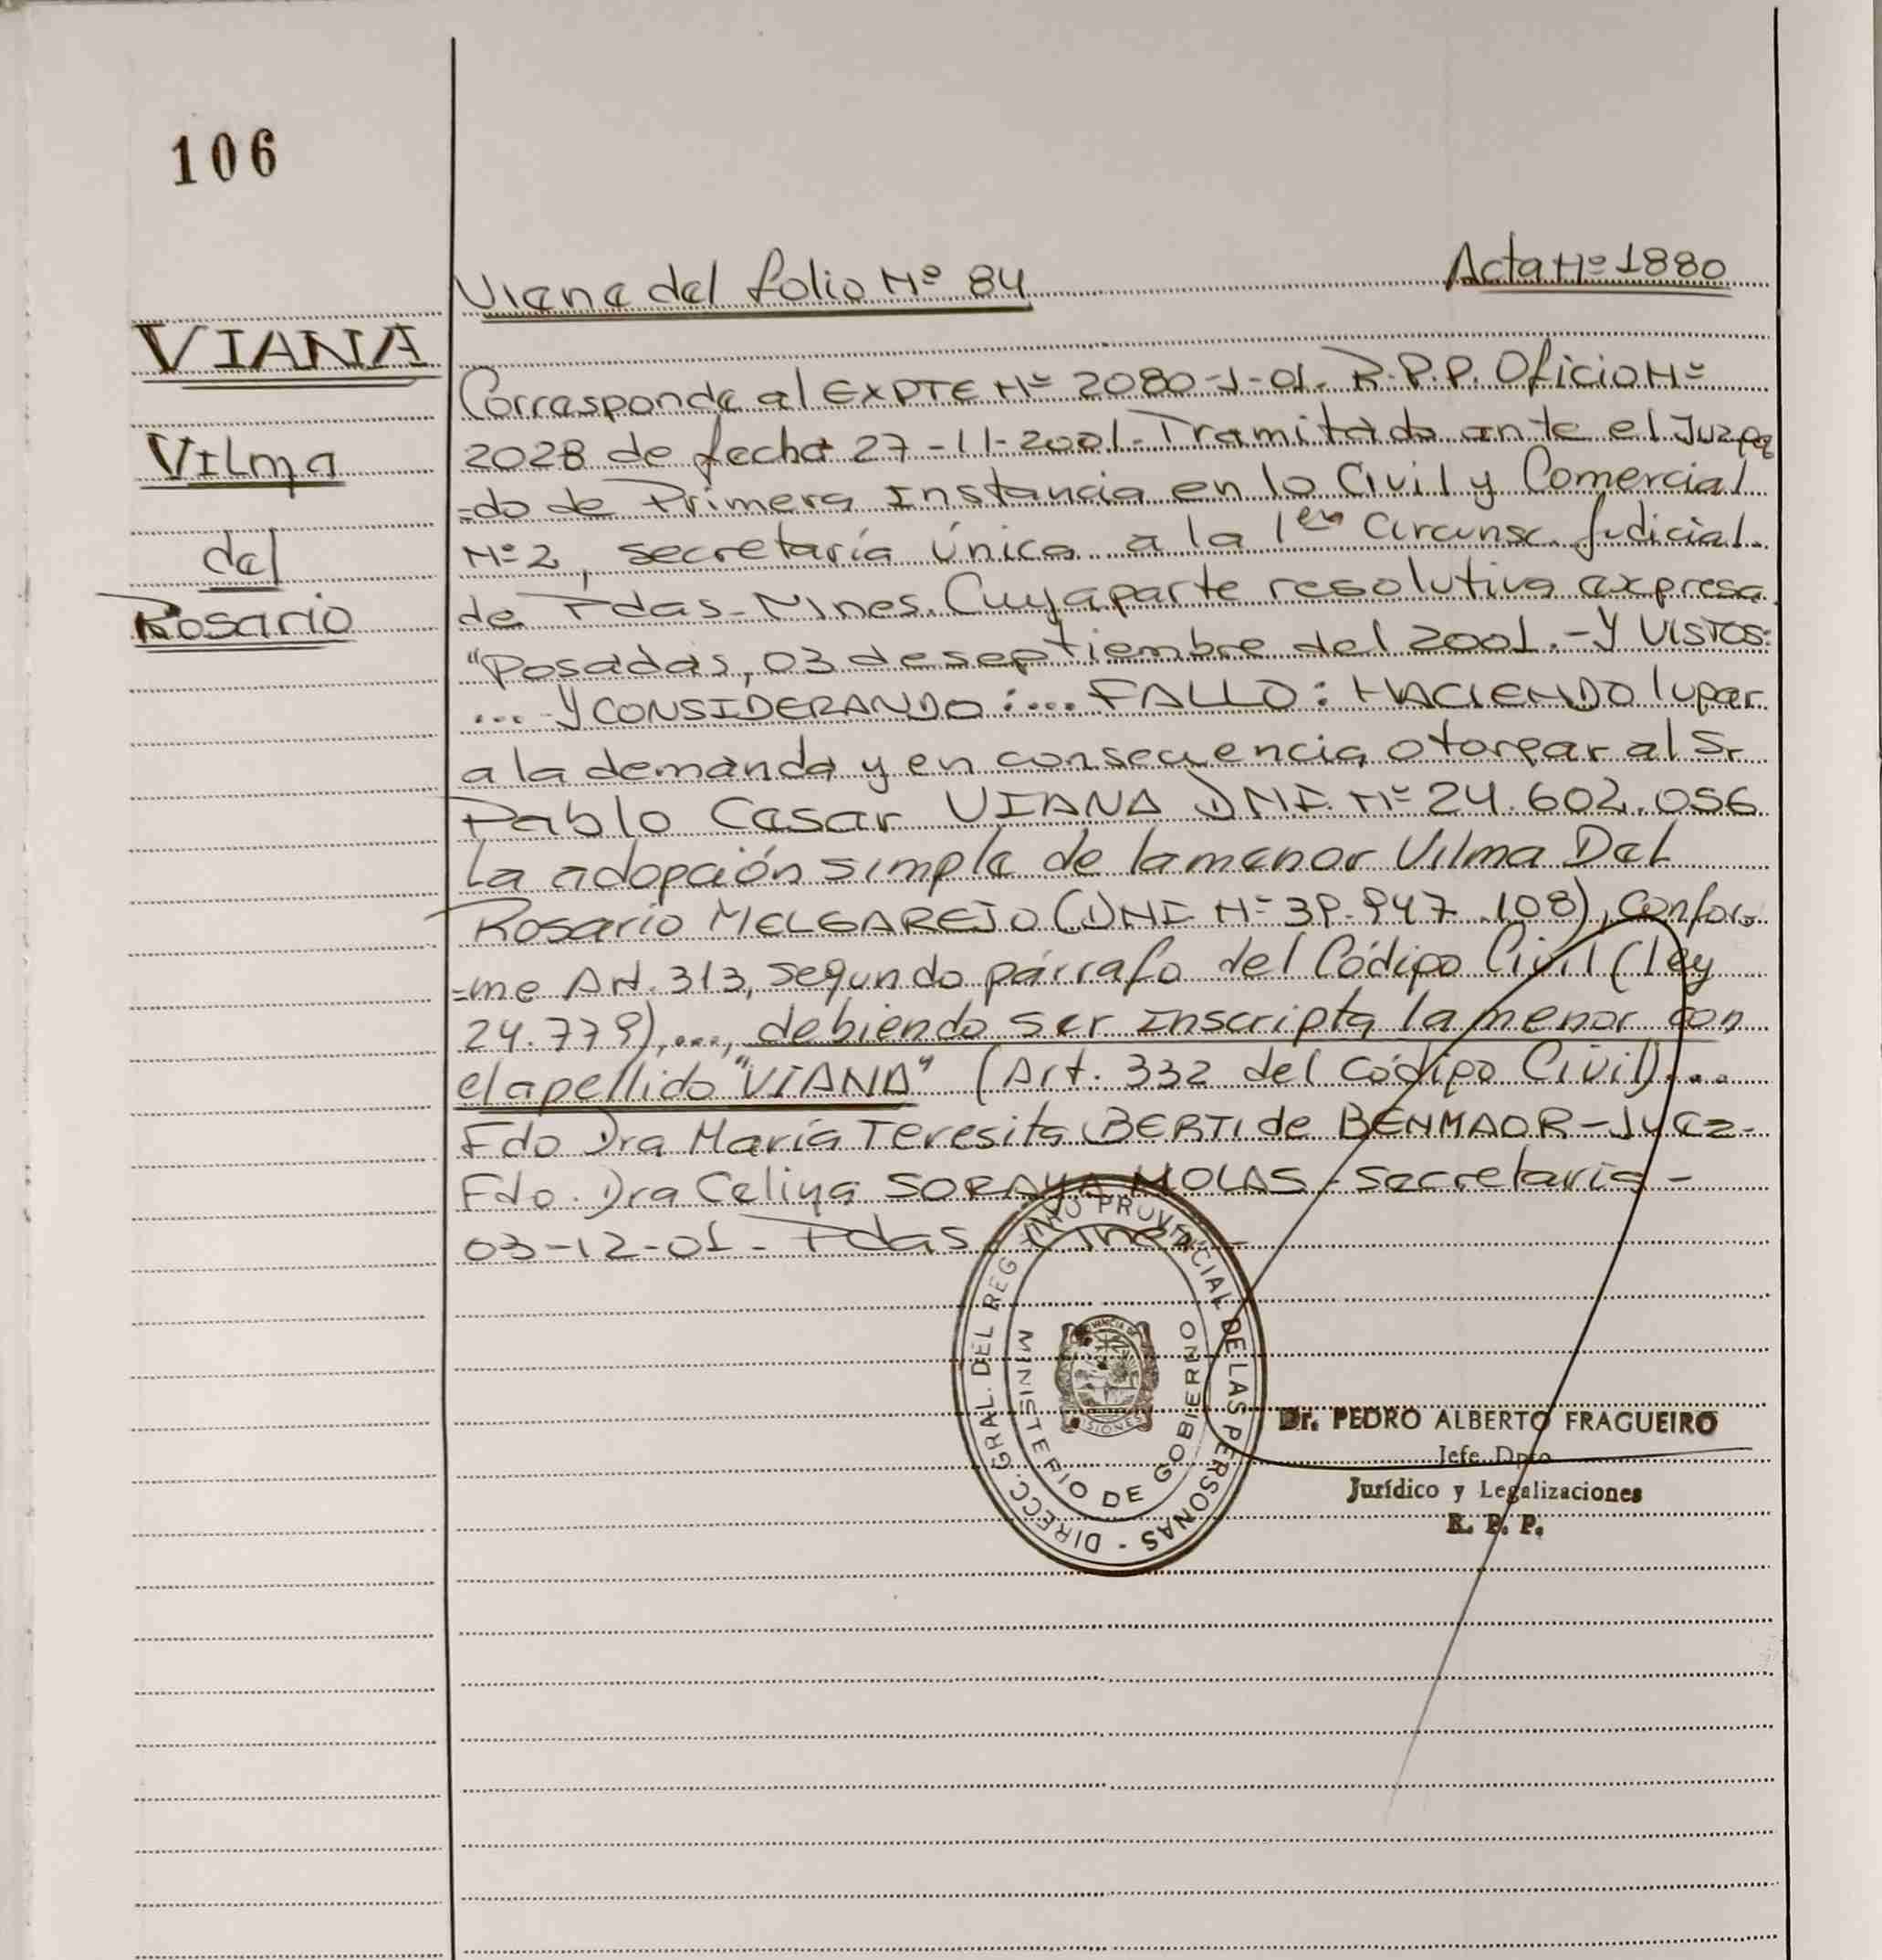 106
Viene del folio Nº 84
Acta Nº 1880
VIANA
Vilma
del
Rosario
Corresponde al EXPTE Nº 2080-J-01. R.P.P. Oficio Nº
2028 de fecha 27-11-2001. Tramitado ante el Juzga
=do de Primera Instancia en lo Civil y Comercial
Nº 2, secretaría única a la 1era Circunsc. Judicial
de Pdas-Mnes. Cuya parte resolutiva expresa
"Posadas, 03 de septiembre del 2001.- Y VISTOS:
... Y CONSIDERANDO:... FALLO: HACIENDO lugar
a la demanda y en consecuencia otorgar al Sr
Pablo Cesar VIANA DNI. Nº 24.602.056
La adopción simple de la menor Vilma Del
Rosario MELGAREJO (DNI Nº 39.947.108), confor
=me Art. 313, segundo párrafo del Código Civil (ley
24.779),..., debiendo ser inscripta la menor con
el apellido "VIANA" (Art. 332 del código Civil)...
Fdo Dra María Teresita BERTI de BENMAOR-Juez-
Fdo. Dra Celina SORAYA MOLAS-Secretaria-
03-12-01- Pdas Mnes-
DIRECC. GRAL. DEL REGISTRO PROVINCIAL DE LAS PERSONAS -
MINISTERIO DE GOBIERNO
PROVINCIA DE
MISIONES
Dr. PEDRO ALBERTO FRAGUEIRO
Jefe Dpto
Jurídico y Legalizaciones
R. P. P.